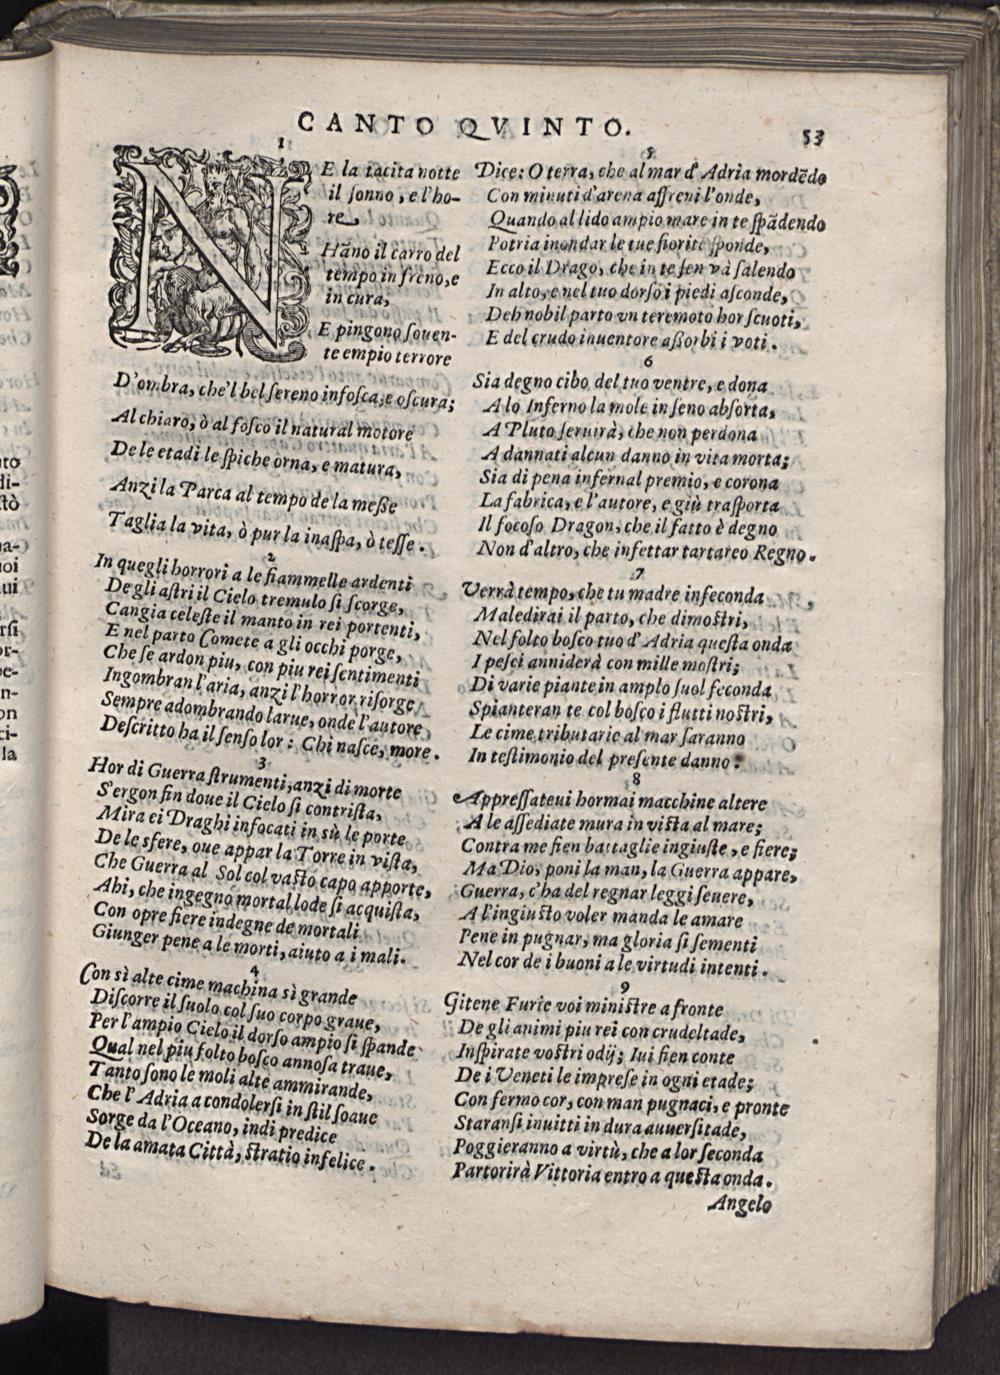 CANTO QVINTO.
53
1
NE la tacita notte
il sonno, e l'ho-
re
Hāno il carro del
tempo in freno, e
in cura,
E pingono souen-
te empio terrore
D'ombra, che'l bel sereno infosca, e oscura;
Al chiaro, ò al fosco il natural motore
De le etadi le spiche orna, e matura,
Anzi la Parca al tempo de la messe
Taglia la vita, ò pur la inaspa, ò tesse.
2
In quegli horrori a le fiammelle ardenti
De gli astri il Cielo tremulo si scorge,
Cangia celeste il manto in rei portenti,
E nel parto Comete a gli occhi porge,
Che se ardon piu, con piu rei sentimenti
Ingombran l'aria, anzi l'horror risorge
Sempre adombrando larue, onde l'autore
Descritto ha il senso lor: Chi nasce, more.
3
Hor di Guerra strumenti, anzi di morte
S'ergon fin doue il Cielo si contrista,
Mira ei Draghi infocati in sù le porte
De le sfere, oue appar la Torre in vista,
Che Guerra al Sol col vasto capo apporte,
Ahi, che ingegno mortal lode si acquista,
Con opre fiere indegne de mortali
Giunger pene a le morti, aiuto a i mali.
4
Con sì alte cime machina sì grande
Discorre il suolo col suo corpo graue,
Per l'ampio Cielo il dorso ampio si spande
Qual nel piu folto bosco annosa traue,
Tanto sono le moli alte ammirande,
Che l'Adria a condolersi in stil soaue
Sorge da l'Oceano, indi predice
De la amata Città, stratio infelice.
5
Dice: O terra, che al mar d'Adria mordēdo
Con minuti d'arena affreni l'onde,
Quando al lido ampio mare in te spādendo
Potria inondar le tue fiorite sponde,
Ecco il Drago, che in te sen và salendo
In alto, e nel tuo dorso i piedi asconde,
Deh nobil parto vn teremoto hor scuoti,
E del crudo inuentore assorbi i voti.
6
Sia degno cibo del tuo ventre, e dona
A lo Inferno la mole in seno absorta,
A Pluto seruirà, che non perdona
A dannati alcun danno in vita morta;
Sia di pena infernal premio, e corona
La fabrica, e l'autore, e giù trasporta
Il focoso Dragon, che il fatto è degno
Non d'altro, che infettar tartareo Regno.
7
Verrà tempo, che tu madre infeconda
Maledirai il parto, che dimostri,
Nel folto bosco tuo d'Adria questa onda
I pesci anniderà con mille mostri;
Di varie piante in amplo suol feconda
Spianteran te col bosco i flutti nostri,
Le cime tributarie al mar saranno
In testimonio del presente danno:
8
Appressateui hormai macchine altere
A le assediate mura in vista al mare;
Contra me fien battaglie ingiuste, e fiere;
Ma Dio, poni la man, la Guerra appare,
Guerra, c'ha del regnar leggi seuere,
A l'ingiusto voler manda le amare
Pene in pugnar, ma gloria si sementi
Nel cor de i buoni a le virtudi intenti.
9
Gitene Furie voi ministre a fronte
De gli animi piu rei con crudeltade,
Inspirate vostri odij; Iui fien conte
De i Veneti le imprese in ogni etade;
Con fermo cor, con man pugnaci, e pronte
Staransi inuitti in dura auuersitade,
Poggieranno a virtù, che a lor seconda
Partorirà Vittoria entro a questa onda.
Angelo